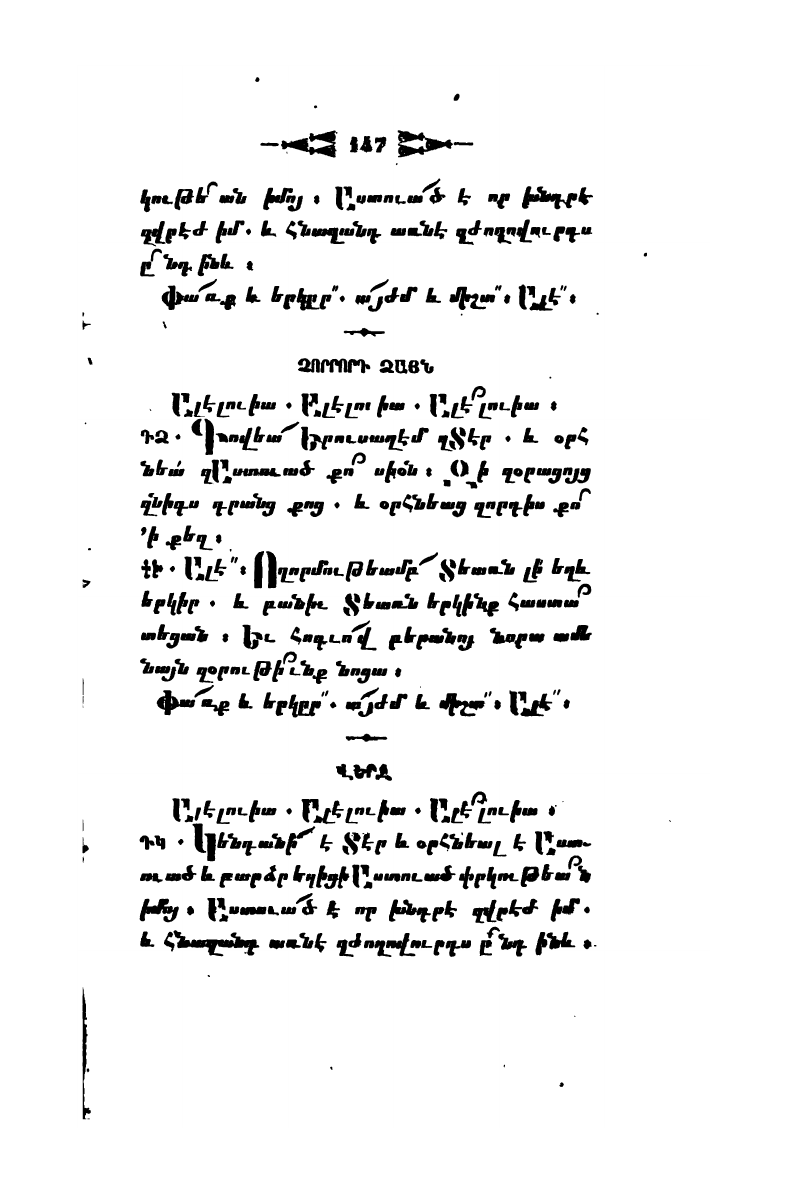 147
կութե՟ան իմոյ ։ Աստուա՛ծ է որ խնդրէ
զվրէժ իմ․ և հնազանդ առնէ զժողովուրդս
ը՟նդ ինև ։
Փա՛ռք և երկրր՟․ ա՛յժմ և միշտ՟։ Ալէ՟։
ՉՈՐՐՈՐԴ ՁԱՅՆ
Ալէլուիա ․ Ալէլուիա ․ Ալէ՟լուիա ։
ԴՁ ․ Գովեա՛ Երուսաղէմ զՏէր ․ և օրհ
նեա՛ զԱստուած քո՟ սիօն ։ Օի զօրացոյց
զնիգս դրանց քոց ․ և օրհնեաց զորդիս քո՟
՚ի քեզ ։
ԴԿ ․ Ալէ՟։ Ողորմութեամբ՛ Տեառն լի եղև
երկիր ․ և բանիւ Տեառն երկինք հաստա՟
տեցան ։ Եւ հոգւո՛վ բերանոյ նորա ամե
նայն զօրութի՟ւնք նոցա ։
Փա՛ռք և երկրր՟․ ա՛յժմ և միշտ՟։ Ալէ՟։
ՎԵՐՋ
Ալէլուիա ․ Ալէլուիա ․ Ալէ՟լուիա ։
ԴԿ ․ Կենդանի՛ է Տէր և օրհնեալ է Աստ-
ուած և բարձր եղիցի Աստուած փրկութեա՟ն
իմոյ ։ Աստուա՛ծ է որ խնդրէ զվրէժ իմ ․
և հնազանդ առնէ զժողովուրդս ը՟նդ ինև ։